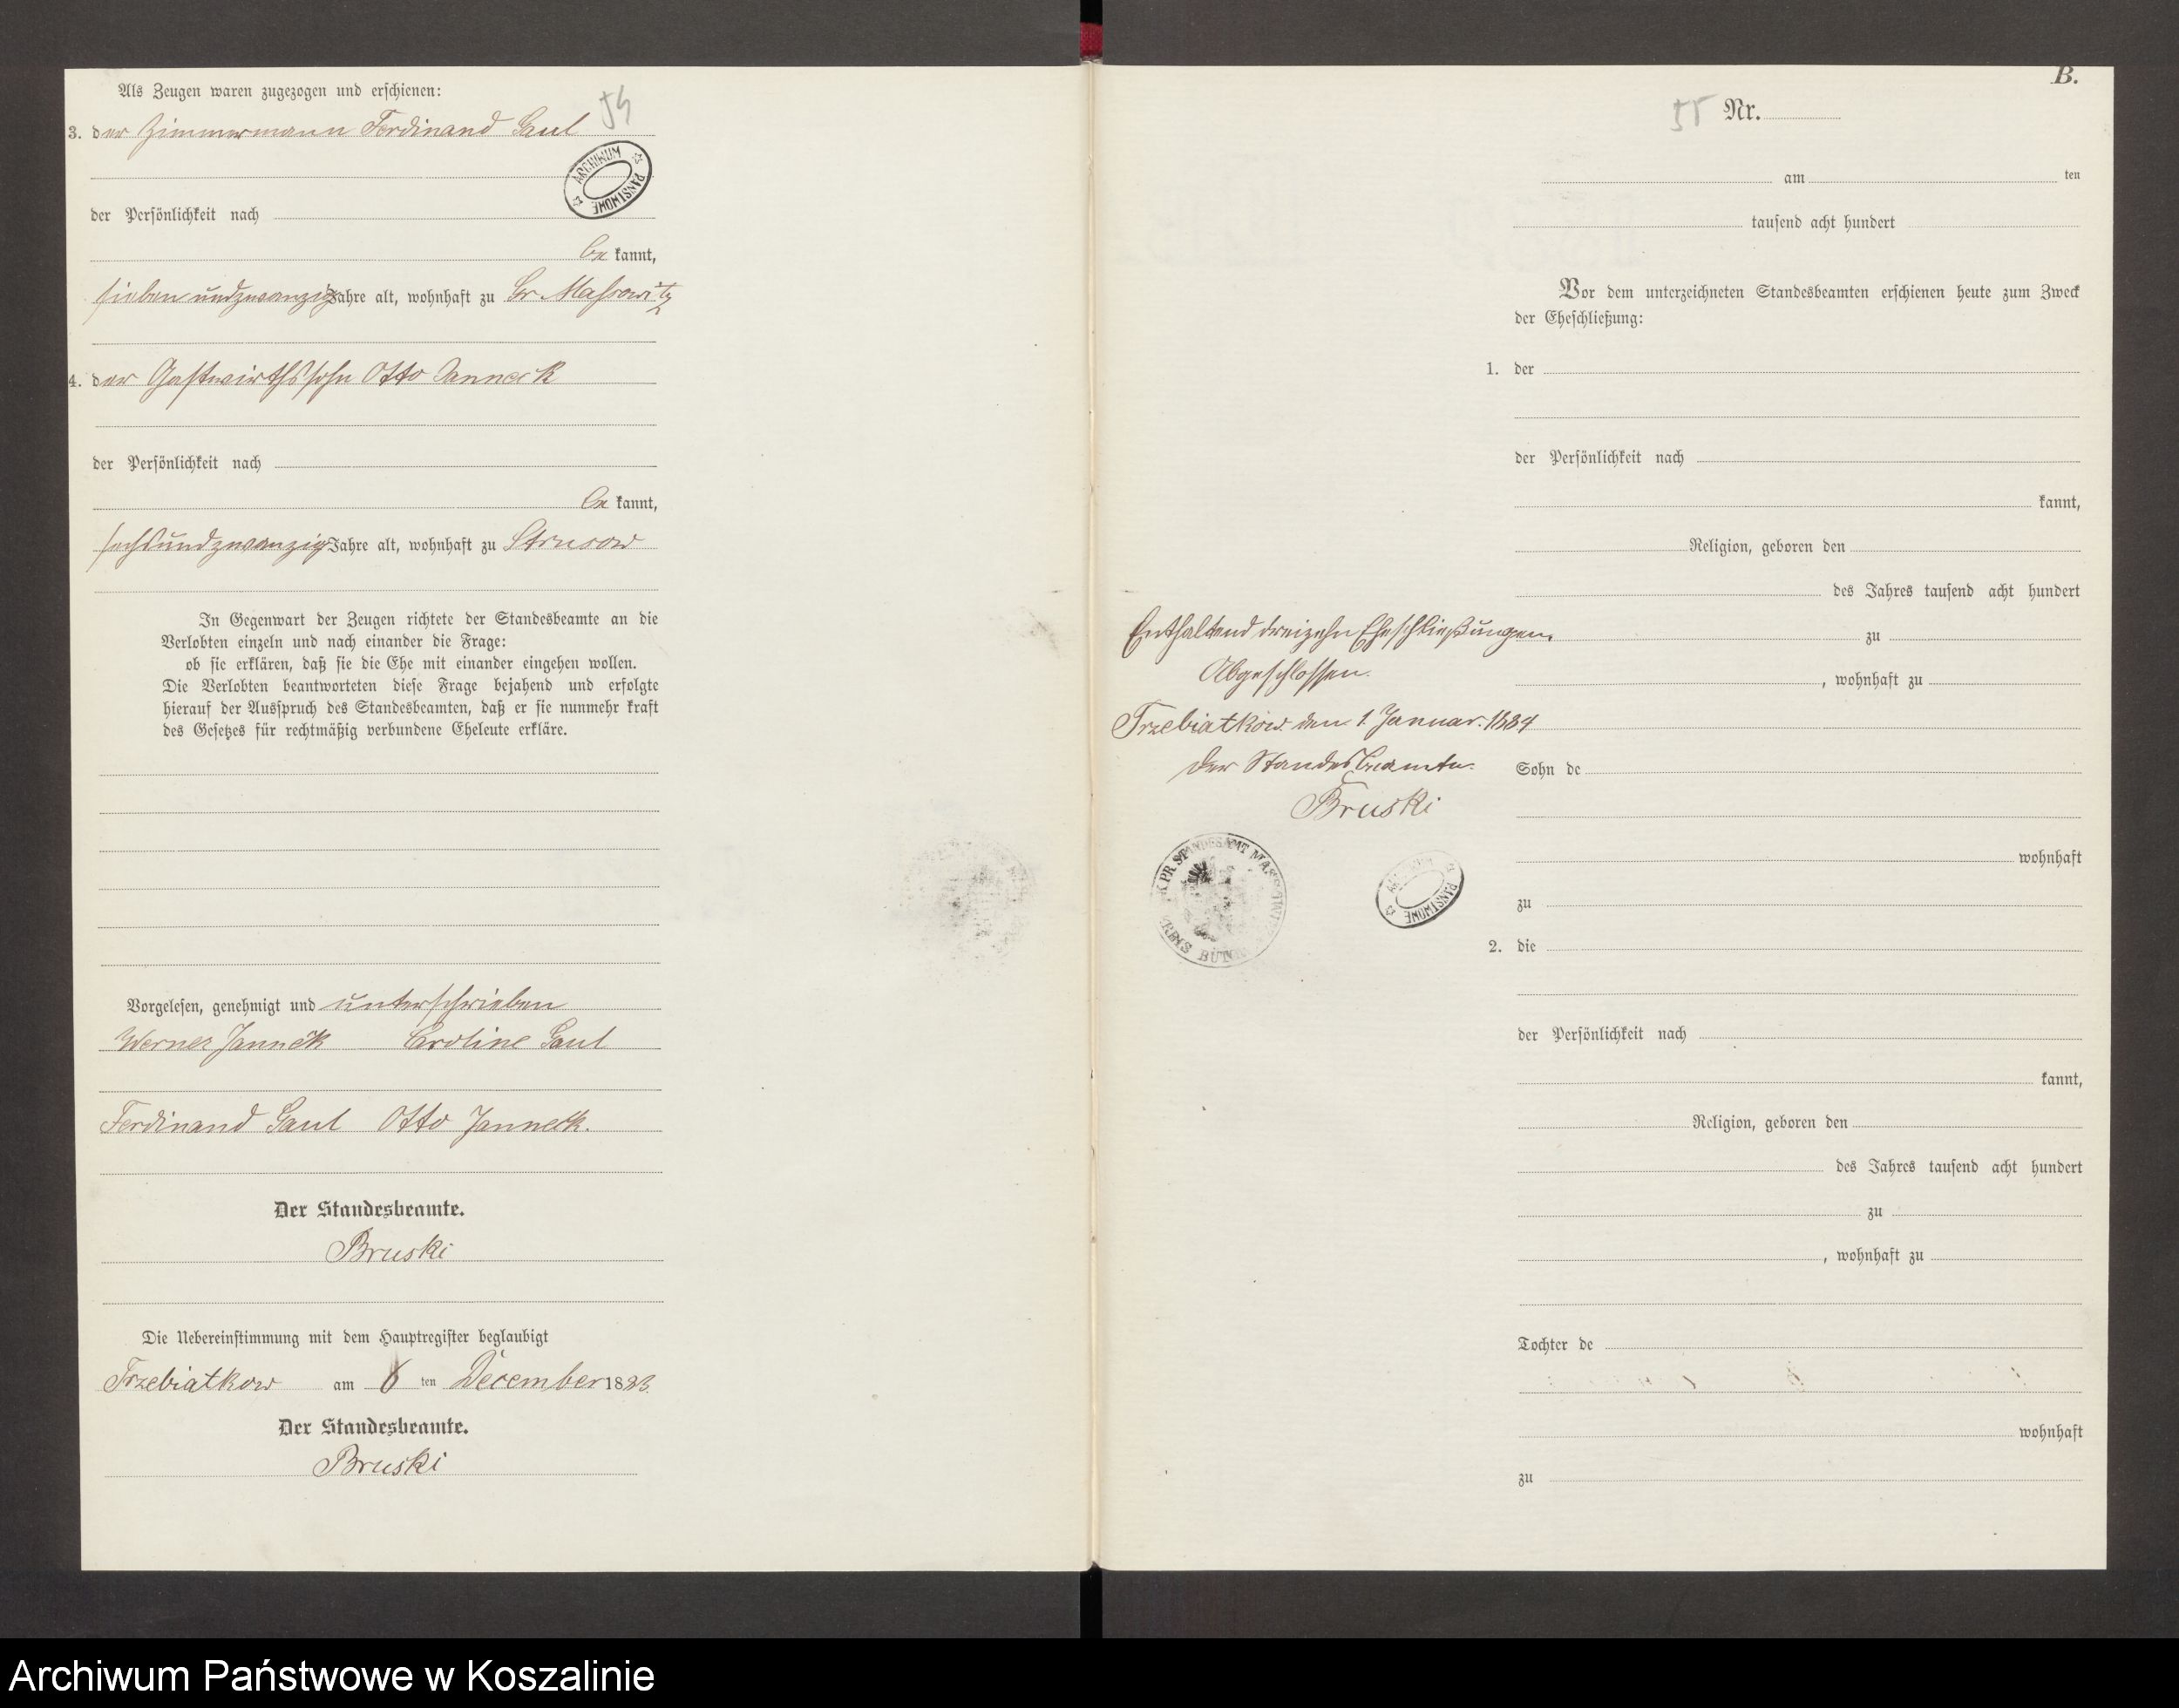 Als Zeugen waren zugezogen und erschienen:
54
3. der Zimmermann Ferdinand Gaul
ARCHIWUM PAŃSTWOWE
der Persönlichkeit nach
be kannt,
sieben undzwanzig Jahre alt, wohnhaft zu Gr. Massowitz
4. der Gastwirthssohn Otto Janneck
der Persönlichkeit nach
be kannt,
sechsundzwanzig Jahre alt, wohnhaft zu Strusow
In Gegenwart der Zeugen richtete der Standesbeamte an die
Verlobten einzeln und nach einander die Frage:
ob sie erklären, daß sie die Ehe mit einander eingehen wollen.
Die Verlobten beantworteten diese Frage bejahend und erfolgte
hierauf der Ausspruch des Standesbeamten, daß er sie nunmehr kraft
des Gesetzes für rechtmäßig verbundene Eheleute erkläre.
Vorgelesen, genehmigt und unterschrieben
Werner Janneck Caroline Gaul
Ferdinand Gaul Otto Janneck.
Der Standesbeamte.
Bruski
Die Uebereinstimmung mit dem Hauptregister beglaubigt
Trzebiatkow am 6 ten December 1883.
Der Standesbeamte.
Bruski
B.
55 Nr.
am ten
tausend acht hundert
Vor dem unterzeichneten Standesbeamten erschienen heute zum Zweck
der Eheschließung:
1. der
der Persönlichkeit nach
kannt,
Religion, geboren den
des Jahres tausend acht hundert
zu
, wohnhaft zu
Sohn de
wohnhaft
zu
2. die
der Persönlichkeit nach
kannt,
Religion, geboren den
des Jahres tausend acht hundert
zu
, wohnhaft zu
Tochter de
wohnhaft
zu
Enthaltend dreizehn Eheschließungen.
Abgeschlossen.
Trzebiatkow den 1. Januar. 1884
Der Standesbeamte.
Bruski
K PR STANDESAMT
KREIS
PAŃSTWOWE
Archiwum Państwowe w Koszalinie